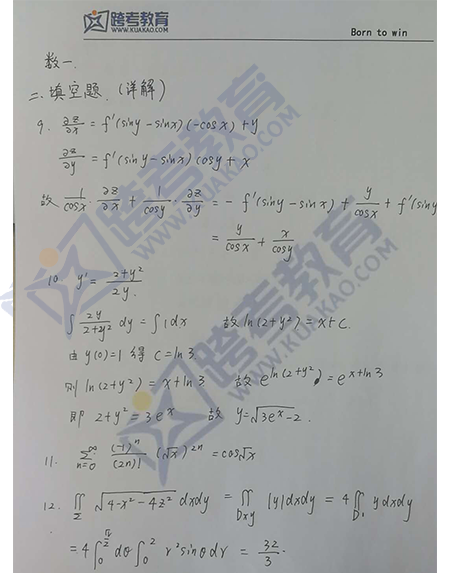 跨考教育
WWW.KUAKAO.COM
Born to win
数一.
二、填空题.（详解）
9. ∂z/∂x = f'(siny-sinx)(-cosx)+y
∂z/∂y = f'(siny-sinx)cosy+x
故 1/cosx·∂z/∂x + 1/cosy·∂z/∂y = -f'(siny-sinx) + y/cosx + f'(siny
= y/cosx + x/cosy
10. y' = (2+y²)/2y.
∫ 2y/(2+y²) dy = ∫1dx 故 ln(2+y²) = x+c.
由 y(0)=1 得 c=ln3.
则 ln(2+y²) = x+ln3 故 e^(ln(2+y²)) = e^(x+ln3)
即 2+y² = 3e^x 故 y=√(3e^x-2).
11. ∑_{n=0}^∞ (-1)^n/(2n)! (√x)^{2n} = cos√x
12. ∬_Σ √(4-x²-4z²) dxdy = ∬_{Dxy} |y|dxdy = 4∬_{D₁} ydxdy
= 4∫_0^{π/2} dθ ∫_0^2 r²sinθdr = 32/3.
跨考教育
WWW.KUAKAO.COM